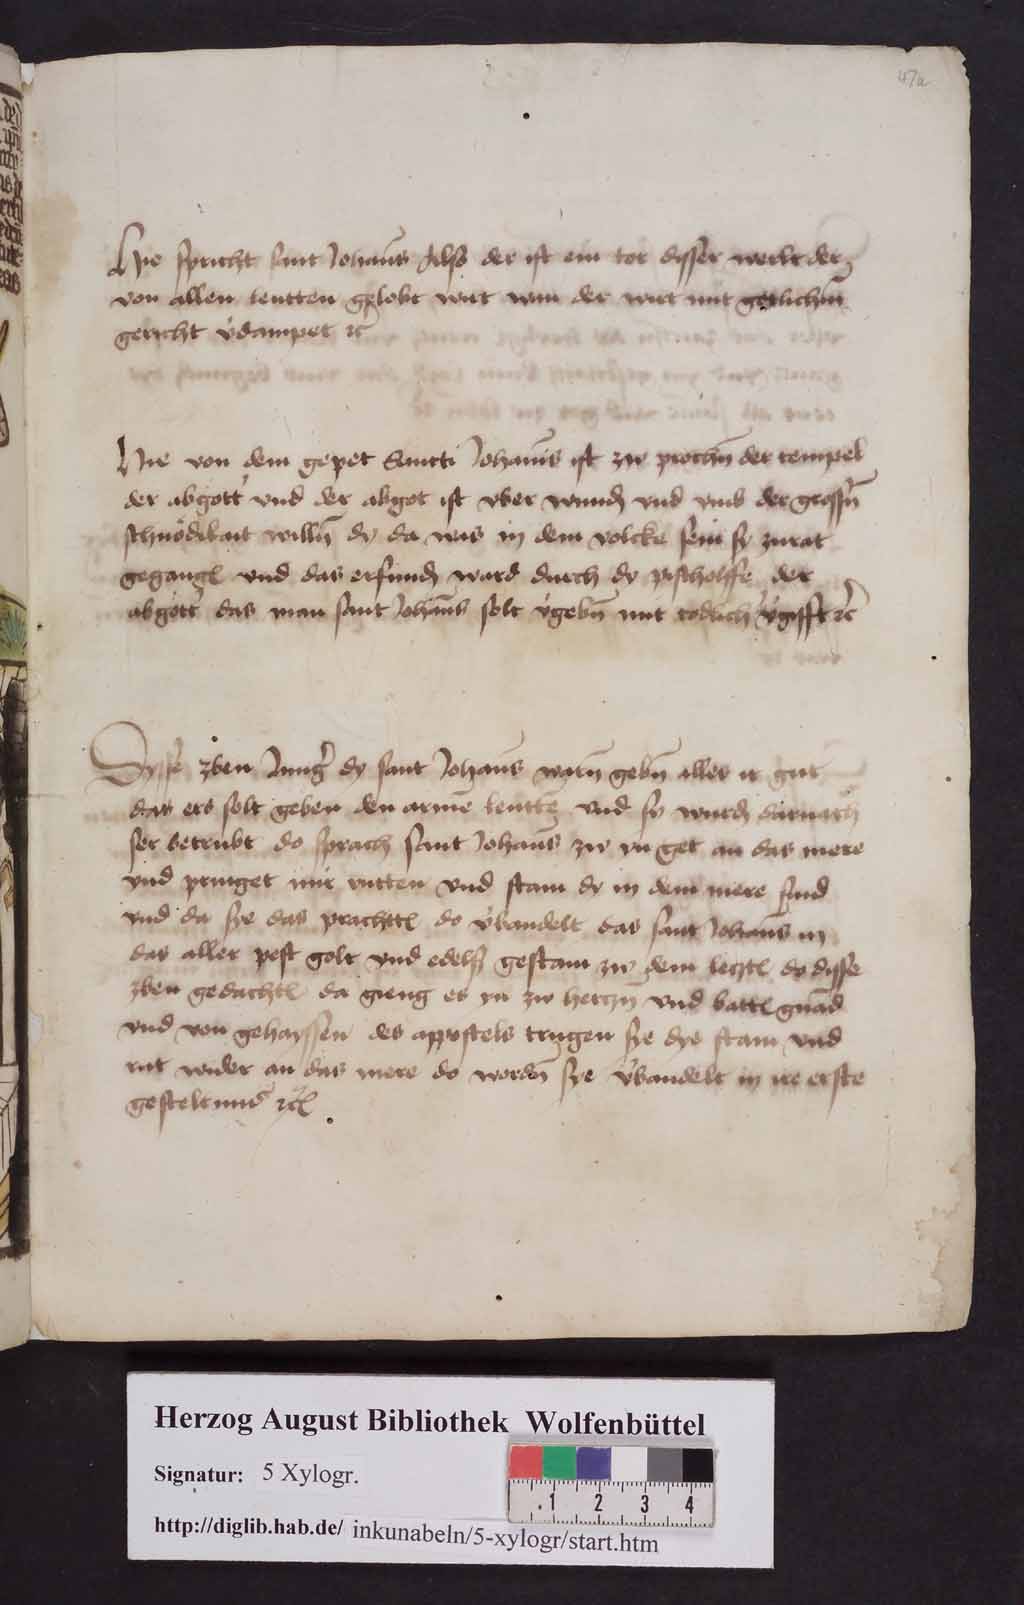 47a
Hie spricht sant Johans Also der ist ein tor disser werlt der
von allen leutten gelobt wirt wan der wirt mit gotlichem
gericht v̓dampet ꝛc
Hie von dem gepet Sancti Johanis ist zw prochn̄ der tempel
der abgott̓ vnd der abgot ist vber wundn̄ vnd vmb der grossn̄
schnödikait willn̄ dy da was in dem volcke sein sy zurat
gegangn̄ vnd das erfundn̄ ward durch dy pischolffe der
abgott̓ das man sant Johans solt v̓gebn̄ mit todlich̓ v̓gifft ꝛc
Dysse zben Jung̓ dy sant Johans warn̄ gebn̄ alles ir gut
das ers solt geben den arme leutten vnd sy wurdn̄ darnach
ser betrubt do sprach sant Johans zw yn get an das mere
vnd pringet mir rutten vnd stain dy in dem mere sind
vnd da sye das prachttn̄ do v̓bandelt das sant Johans in
das aller pest golt vnd edelß gestain zw dem leczten do disse
zben gedachtn̄ da gieng es yn zw herczn̄ vnd battn̄ gnad
vnd von gehayssen des appostels trugen sye dye stain vnd
rut wider an das mere do wordn̄ sye v̓bandelt in ire erste
gesteltnus ꝛc
Herzog August Bibliothek Wolfenbüttel
Signatur: 5 Xylogr.
1 2 3 4
http://diglib.hab.de/ inkunabeln/5-xylogr/start.htm